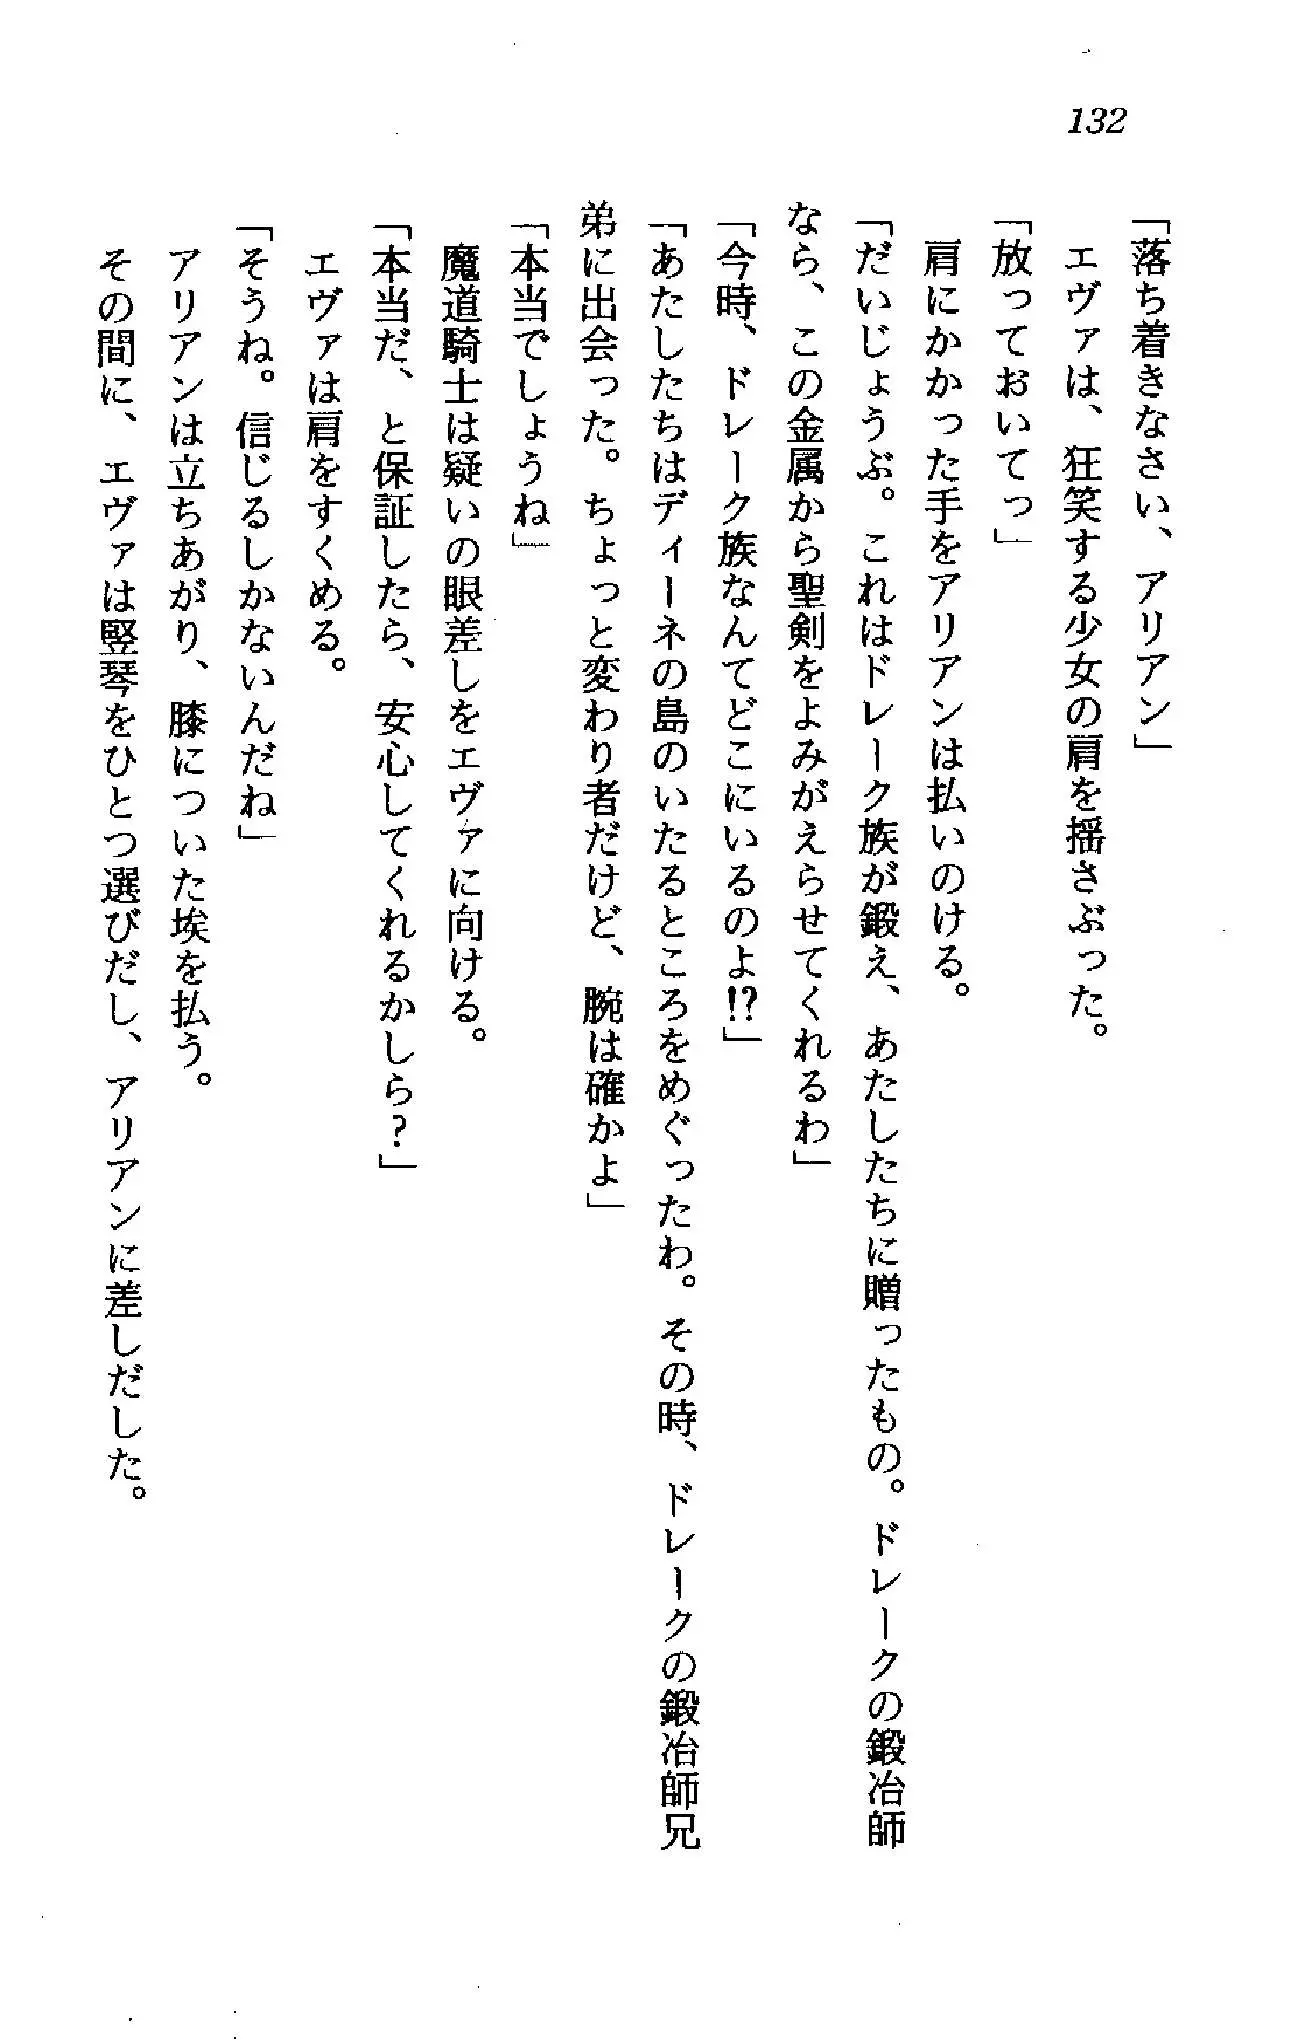 132
「落ち着きなさい、アリアン」
エヴァは、狂笑する少女の肩を揺さぶった。
「放っておいてっ」
肩にかかった手をアリアンは払いのける。
「だいじょうぶ。これはドレーク族が鍛え、あたしたちに贈ったもの。ドレークの鍛冶師
なら、この金属から聖剣をよみがえらせてくれるわ」
「今時、ドレーク族なんてどこにいるのよ!?」
「あたしたちはディーネの島のいたるところをめぐったわ。その時、ドレークの鍛冶師兄
弟に出会った。ちょっと変わり者だけど、腕は確かよ」
「本当でしょうね」
魔道騎士は疑いの眼差しをエヴァに向ける。
「本当だ、と保証したら、安心してくれるかしら?」
エヴァは肩をすくめる。
「そうね。信じるしかないんだね」
アリアンは立ちあがり、膝についた埃を払う。
その間に、エヴァは竪琴をひとつ選びだし、アリアンに差しだした。